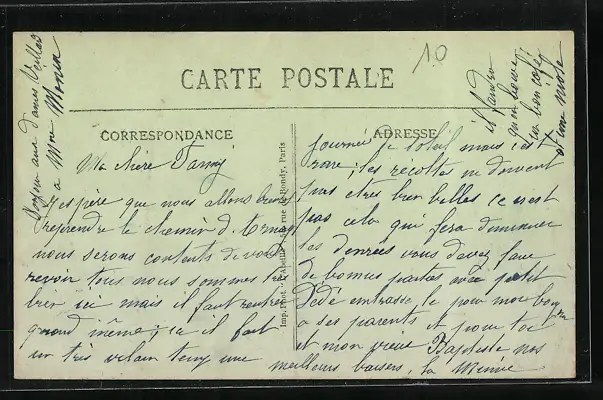 10
CARTE POSTALE
CORRESPONDANCE
ADRESSE
Ma chère Fanny
J'espère que nous allons bientôt
reprendre le chemin d'
nous serons contents de vous
revoir tous nous sommes très
bien ici mais il faut rentrer
quand même ; ici il fait
un très vilain temps une
journée de soleil mais c'est
rare ; les récoltes ne doivent
pas etres bien belles ce n'est
pas cela qui fera diminuer
les denrées vous devez faire
de bonnes parties avec petit
Dédé embrasse le pour moi
a ses parents et pour toi
et mon vieux Baptiste nos
meilleurs baisers, la
Imp. Phot. "Abeille", rue de Bondy, Paris
Bonjour aux dames
a Mme
il faudra
mon
un bon café
et une